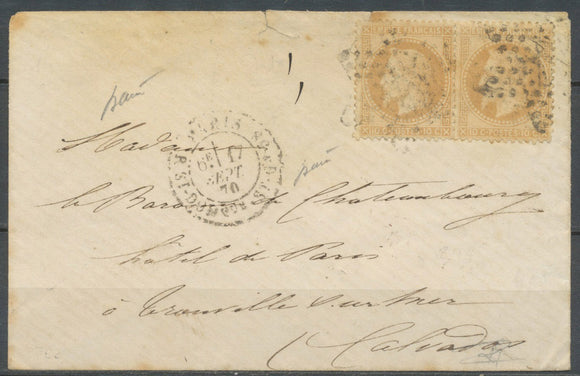 EMPIRE FRANÇAIS
10 C POSTES 10 C
PARIS
6E 17
SEPT.
70
R. ST-DOMQUE
Madame
la Baronne de Chateaubourg
hôtel de Paris
à Trouville sur mer
Calvados